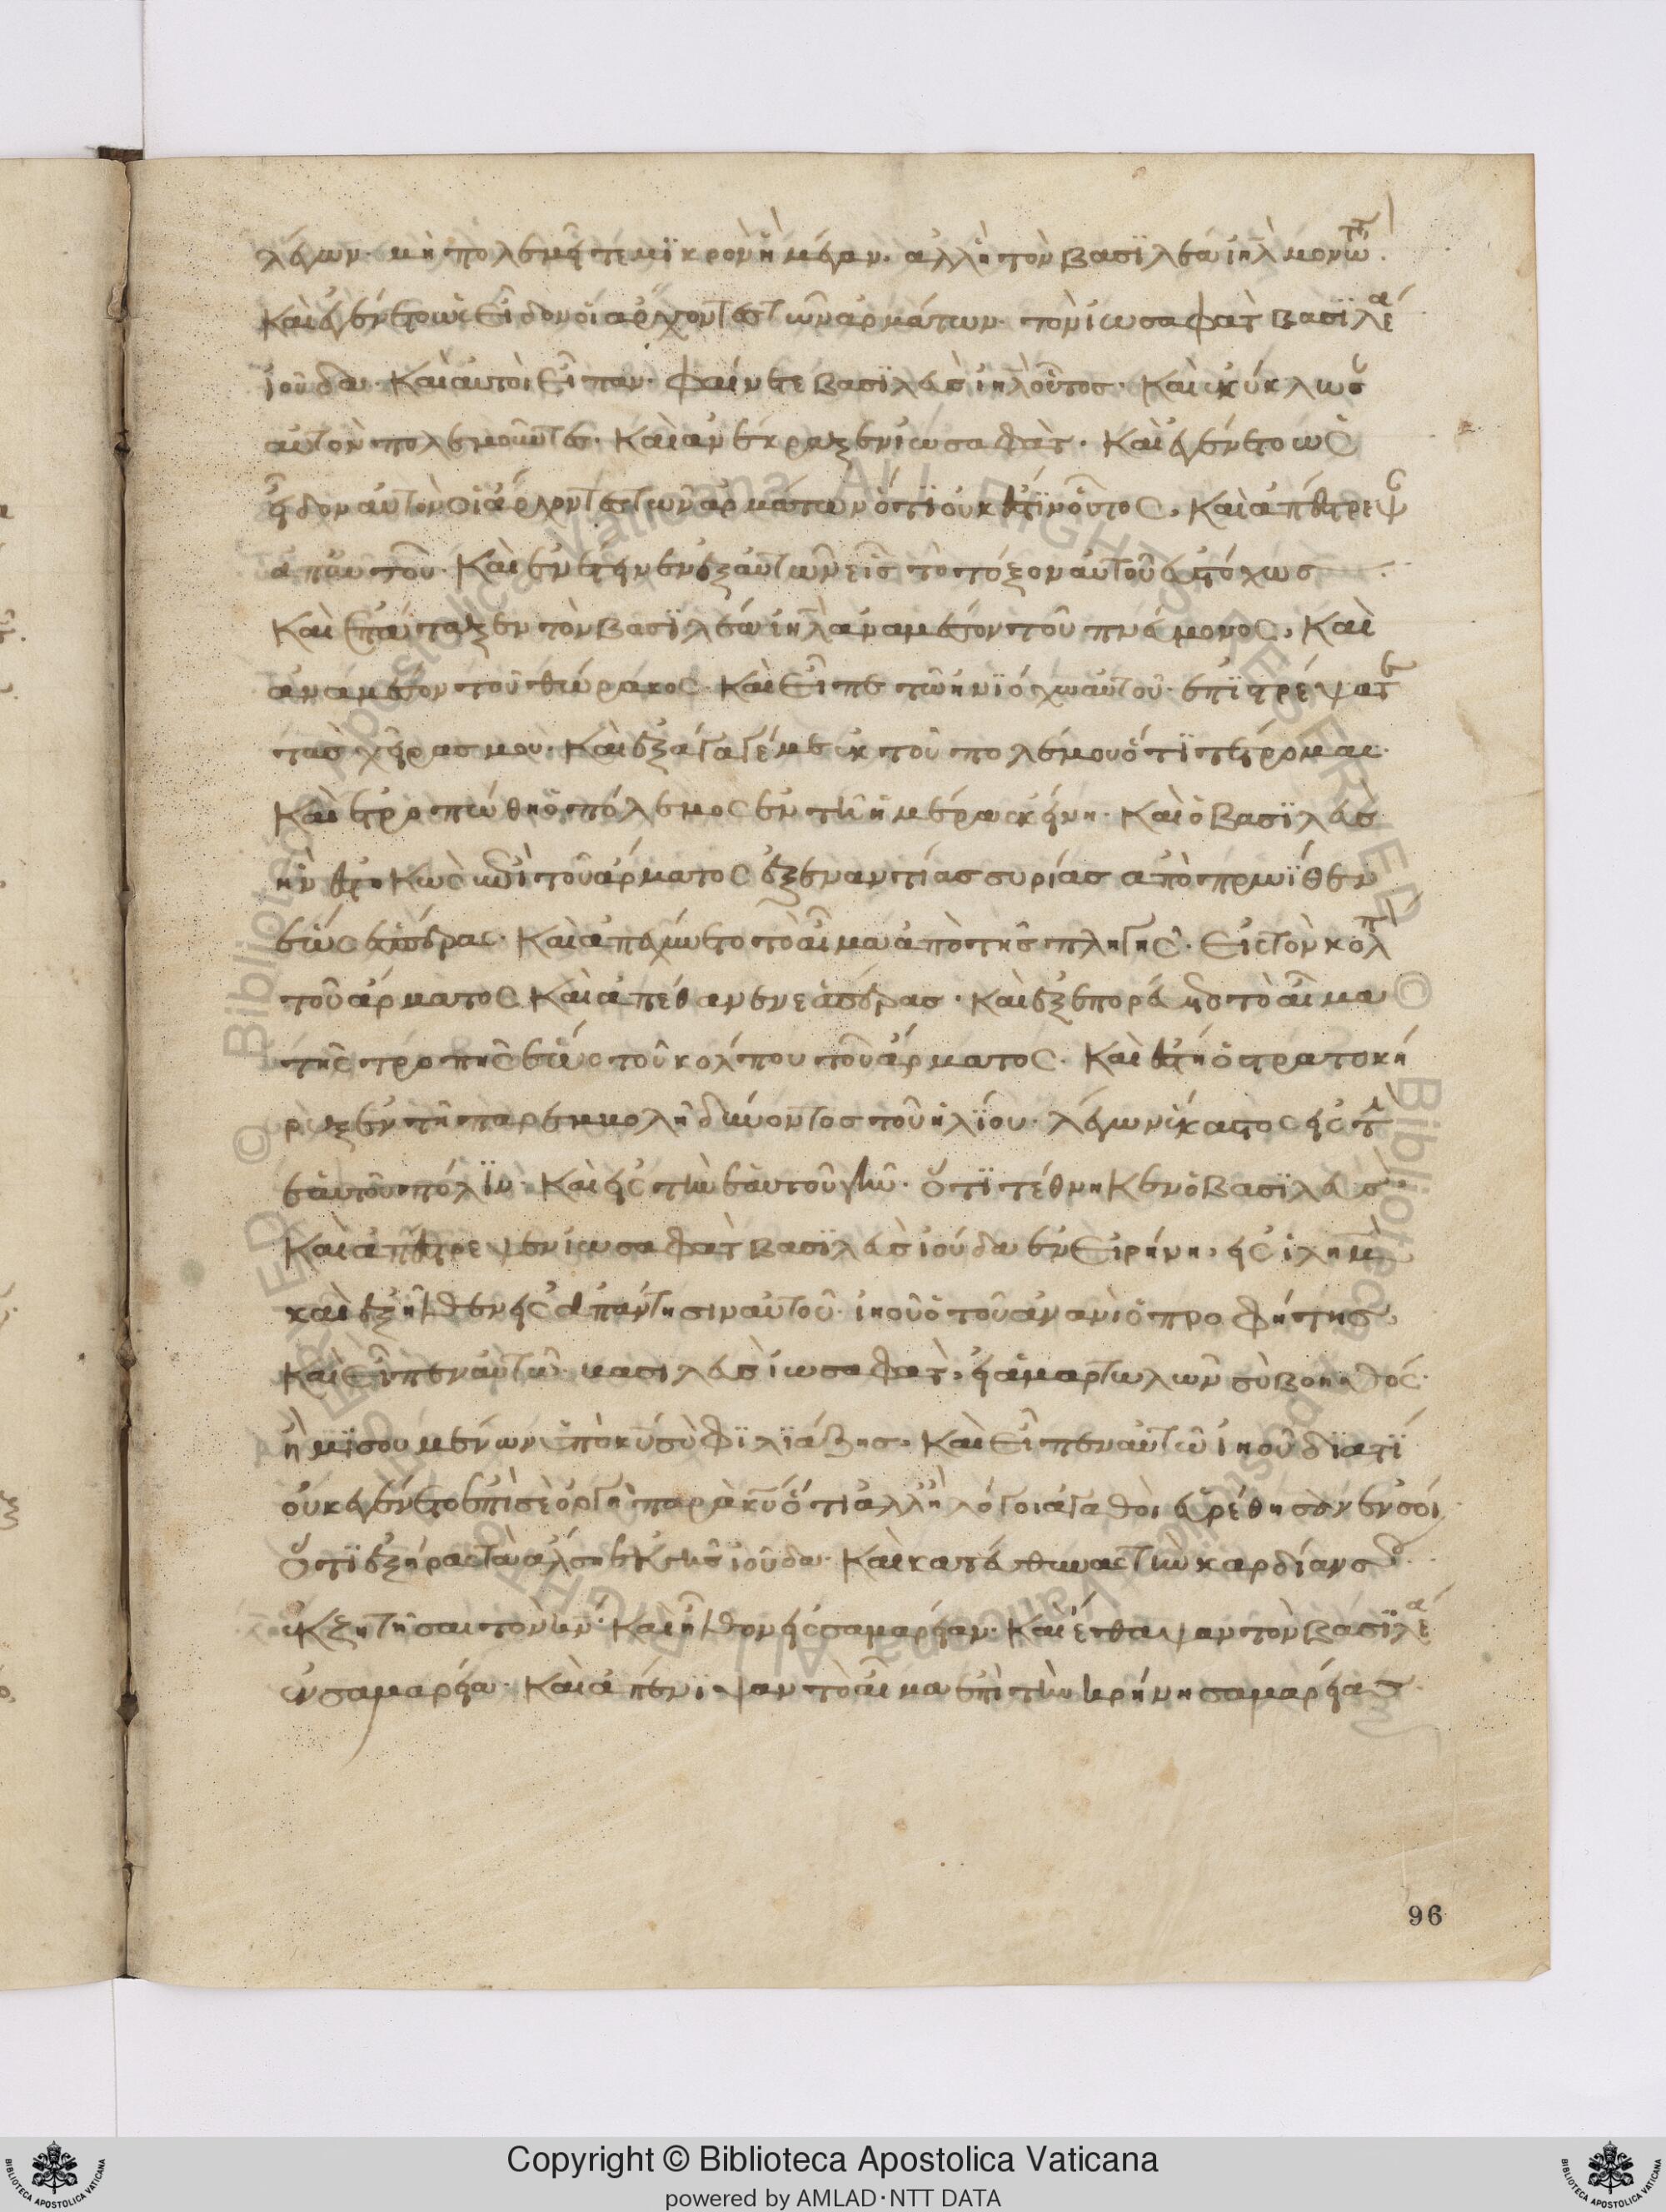 λέγων· μὴ πολεμεῖτε μϊκρὸν ἢ μέγαν· ἀλλ' ἢ τὸν βασϊλέα ιηλ μονώτατον·
Καὶ ἐγένετο ὡς εἶδον οἱ ἄρχοντες τῶν ἁρμάτων τὸν ἰωσαφὰτ βασϊλέα
ἰούδα· Καὶ αὐτοὶ εἶπαν· φαίνεται βασϊλεὺς ιηλ οὗτος· Καὶ ἐκύκλωσ
αὐτὸν πολεμοῦντες· Καὶ ἀνέκραξεν ἰωσαφάτ· Καὶ ἐγένετο ὡς
εἶδον αὐτὸν οἱ ἄρχοντες τῶν ἁρμάτων ὅτϊ οὐκ ἔστϊν οὗτος, Καὶ ἀπέστρεψ
ἀπ αὐτοῦ· Καὶ ἐνέτεινεν εἷς ἐξ αὐτῶν τὸ τόξον αὐτοῦ εὐστόχως
Καὶ ἐπάταξεν τὸν βασϊλέα ιηλ ἀναμέσον τοῦ πνεύμονος, Καὶ
ἀναμέσον τοῦ θώρακος· Καὶ εἶπε τῶ ἡνϊόχω αὐτοῦ· ἐπϊστρέψατε
τὰς χεῖρας μου· Καὶ ἐξάγαγέ με ἐκ τοῦ πολέμου ὅτϊ τέτρομαι·
Καὶ ἐτροπώθη ὁ πόλεμος ἐν τῆ ἡμέρα ἐκείνη· Καὶ ὁ βασϊλεὺς
ἦν ἑστηκὼς ἐπὶ τοῦ ἅρματος ἐξεναντίας συρίας ἀπὸ πρωΐθεν
ἕως ἑσπέρας· Καὶ ἀπεχύνετο τὸ αἷμα ἀπὸ τῆς πληγῆς· εἰς τὸν κόλπ
τοῦ ἅρματος Καὶ ἀπέθανεν ἑσπέρας· καὶ ἐξεπορεύετο τὸ αἷμα
τῆς τροπῆς ἕως τοῦ κόλπου τοῦ ἅρματος· Καὶ ἔστη ὁ στρατοκή
ρυξ ἐν τῆ παρεμβολῆ δύνοντος τοῦ ἡλϊου· λέγων ἕκαστος εἰς τ
ἑαυτοῦ πόλϊν· Καὶ εἰς τὴν ἑαυτοῦ γῆν· ὅτϊ τέθνηκεν ὁ βασϊλεύς·
Καὶ ἀπέστρεψεν ἰωσαφὰτ βασϊλεὺς ἰούδα ἐν εἰρήνη, εἰς ιλημ
καὶ ἐξῆλθεν εἰς ἀπάντησιν αὐτοῦ· ἰηοὺ ὁ τοῦ ἀνανὶ ὁ προφήτης,
Καὶ εἶπεν αὐτῶ· βασιλεὺς ἰωσαφάτ, εἰ ἁμαρτωλῶν σὺ βοηθός·
ἢ μϊσουμένων ὑπὸ κυ σὺ φϊλϊάζης· Καὶ εἶπεν αὐτῶ ἰηοὺ δϊατϊ
οὐκ ἐγένετο ἐπὶ σὲ ὀργὴ παρὰ κυ ὅτι ἀλλ' ἢ λόγοι ἀγαθοὶ εὑρέθησαν ἐν σοί
ὅτϊ ἐξῆρας τὰ ἄλση ἐκ τῆς ἰούδα· Καὶ κατεύθυνας τὴν καρδίαν σου
ἐκζητῆσαι τὸν κν· Καὶ ἦλθον εἰς σαμαρείαν· Καὶ ἔθαψαν τὸν βασϊλέα
ἐν σαμαρεία· Καὶ ἀπένιψαν τὸ αἷμα ἐπὶ τὴν κρήνη σαμαρείας
96
Copyright © Biblioteca Apostolica Vaticana
powered by AMLAD·NTT DATA